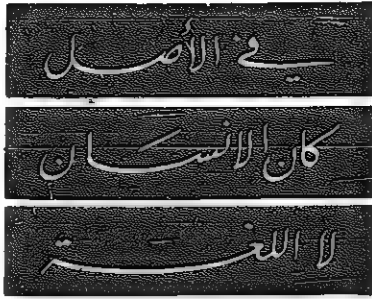 في الأصل
كان الانسان
لا اللغة